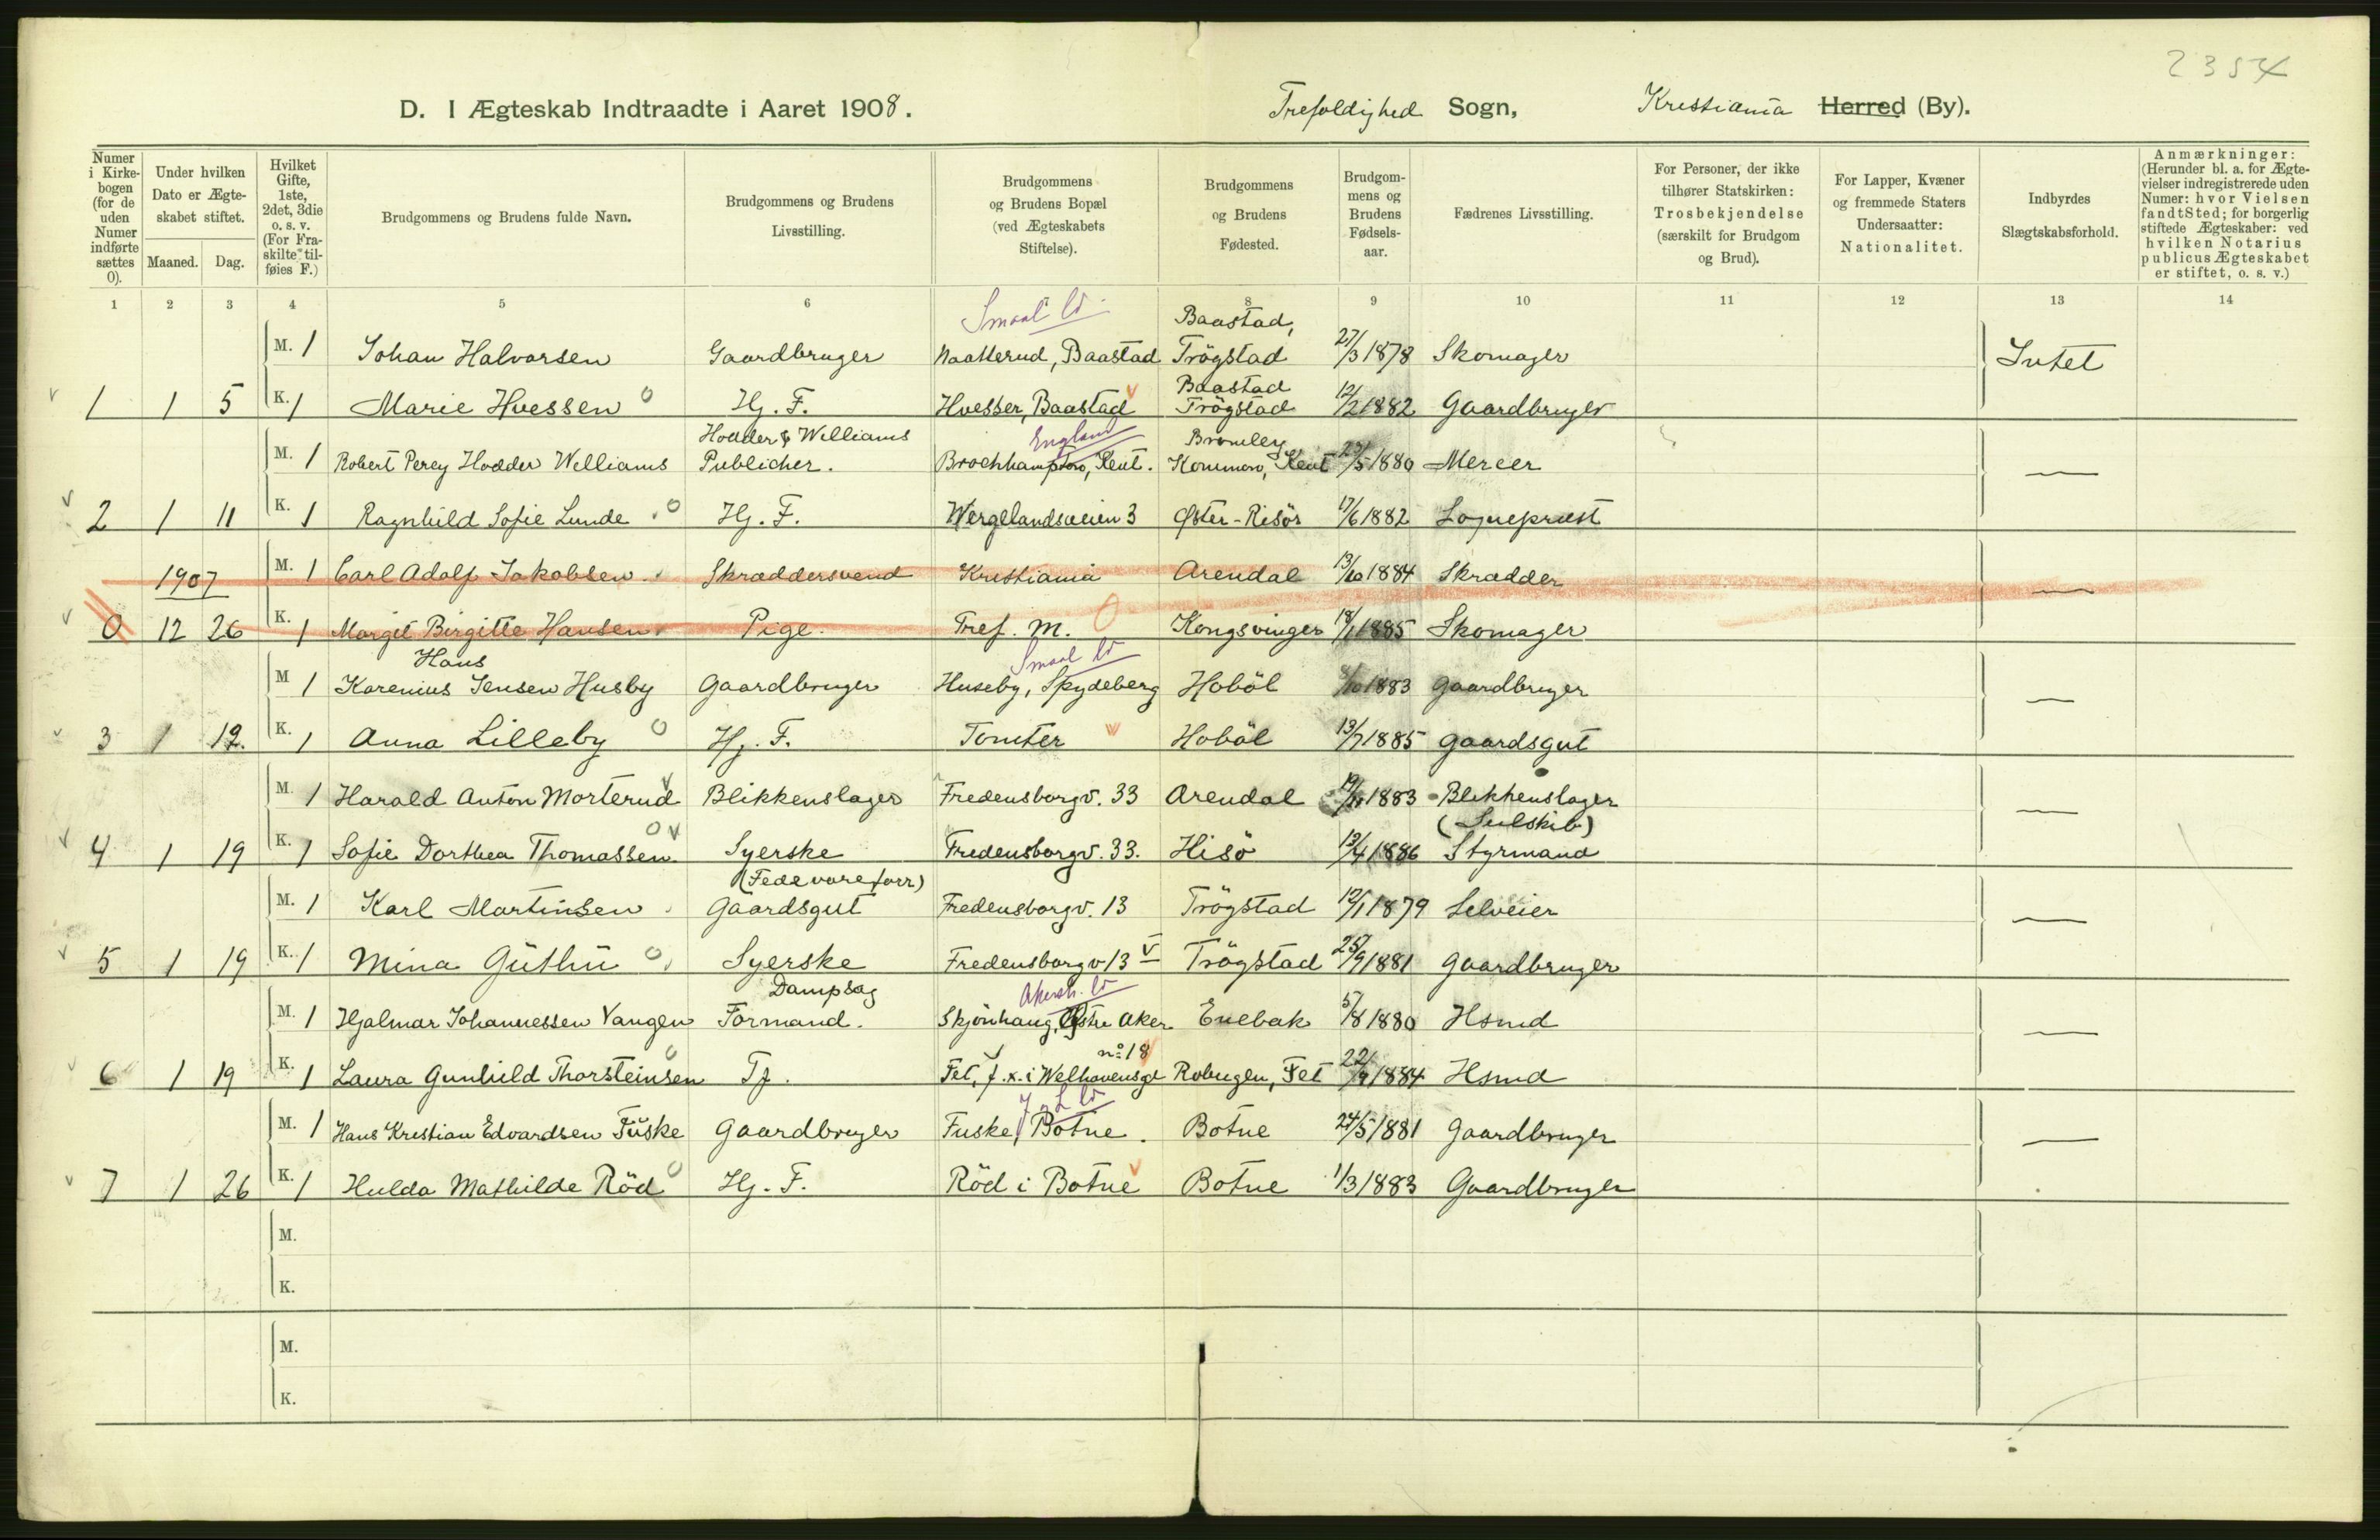 2354
D. I Ægteskab Indtraadte i Aaret 1908. Trefoldighed Sogn, Kristiania Herred (By).
Numer i Kirkebogen (for de uden Numer indførte sættes 0).
Under hvilken Dato er Ægteskabet stiftet.
Maaned. Dag.
Hvilket Gifte, 1ste, 2det, 3die o. s. v. (For Fraskilte tilføies F.)
Brudgommens og Brudens fulde Navn.
Brudgommens og Brudens Livsstilling.
Brudgommens og Brudens Bopæl (ved Ægteskabets Stiftelse).
Brudgommens og Brudens Fødested.
Brudgommens og Brudens Fødselsaar.
Fædrenes Livsstilling.
For Personer, der ikke tilhører Statskirken: Trosbekjendelse (særskilt for Brudgom og Brud).
For Lapper, Kvæner og fremmede Staters Undersaatter: Nationalitet.
Indbyrdes Slægtskabsforhold.
Anmærkninger: (Herunder bl. a. for Ægtevielser indregistrerede uden Numer: hvor Vielsen fandt Sted; for borgerlig stiftede Ægteskaber: ved hvilken Notarius publicus Ægteskabet er stiftet, o. s. v.)
1 2 3 4 5 6 7 8 9 10 11 12 13 14
Smaal
Baastad,
M. 1 Johan Halvorsen Gaardbruger Naatterud, Baastad Trögstad 27/3 1878 Skomager Intet
Baastad
1 1 5 K. 1 Marie Hvessen Hj. F. Hvesser, Baastad Trögstad 12/2 1882 Gaardbruger
Hodder & Williams England Bromley
M. 1 Robert Percy Hodder Williams Publicher. Kent. Kommon, Kent 1880 Mercer —
2 1 11 K. 1 Ragnhild Sofie Lunde Hj. F. Wergelandsveien 3 Øster-Risör 17/6 1882 Sogneprest
1907 M. 1 Carl Adolf Jakobsen Skræddersvend Kristiania Arendal 13/10 1884 Skrædder —
0 12 26 K. 1 Margit Birgitte Hansen Pige. Tref. M. Kongsvinger 18/1 1885 Skomager
Hans Smaal
M 1 Karenius Jensen Husby Gaardbruger Huseby, Spydeberg Hoböl 1883 Gaardbruger —
3 1 12. K. 1 Anna Lilleby Hj. F. Tomter Hoböl 13/7 1885 Gaardsgut
M. 1 Harald Anton Morterud Blikkenslager Fredensborgv. 33 Arendal 1883 Blikkenslager —
(Seilskib)
4 1 19 K. 1 Sofie Dorthea Thomassen Syerske Fredensborgv. 33. Hisö 13/4 1886 Styrmand
(Fedevareforr)
M. 1 Karl Martinsen Gaardsgut Fredensborgv. 13 Trögstad 12/1 1879 Selveier —
5 1 19 K. 1 Mina Güthü Syerske Fredensborgv 13 Trögstad 25/9 1881 Gaardbruger
Dampsag Akersh.
M. 1 Hjalmar Johannessen Vangen Formand. Skjönhaug, Østre Aker Enebak 5/8 1880 Hsmd —
no 18
6 1 19 K. 1 Laura Gunhild Thorsteinsen Tj. Fet, f. x. i Welhavensgt Robugen, Fet 22/9 1884 Hsmd
M. 1 Hans Kristian Edvardsen Fuske Gaardbruger Fuske, Botne. Botne 24/5 1881 Gaardbruger —
7 1 26 K. 1 Hulda Mathilde Röd Hj. F. Röd i Botne Botne 1/3 1883 Gaardbruger
M.
K.
M.
K.